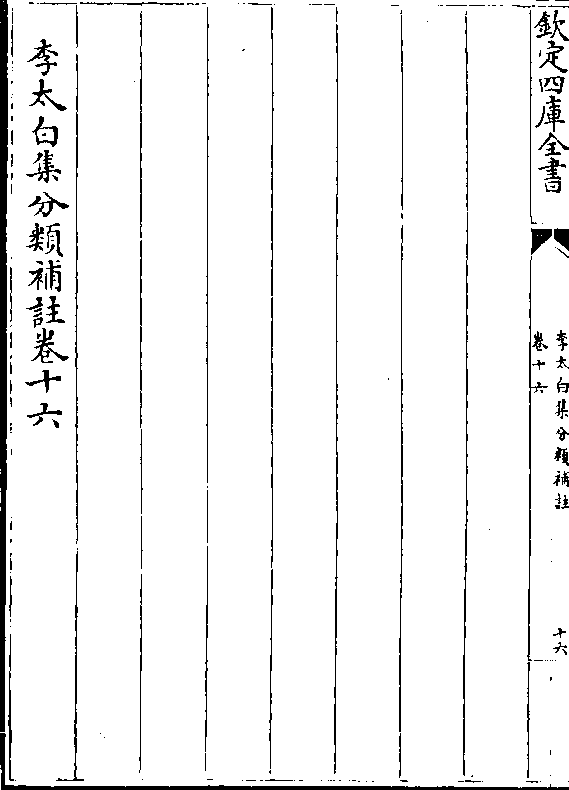 欽定四庫全書
李太白集分類補註
卷十六
十六
李太白集分類補註卷十六